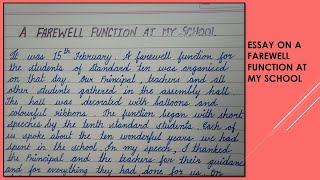 A FAREWELL FUNCTION AT MY SCHOOL
It was 15th February. A farewell function for
the students of standard ten was organised
on that day. Our Principal, teachers and all
other students gathered in the assembly hall.
The hall was decorated with balloons and
colourful ribbons. The function began with short
speeches by the tenth standard students. Each of
us spoke about the ten wonderful years we had
spent in the school. In my speech, I thanked
the Principal and the teachers for their guidance
and for everything they had done for us. On
ESSAY ON A
FAREWELL
FUNCTION AT
MY SCHOOL